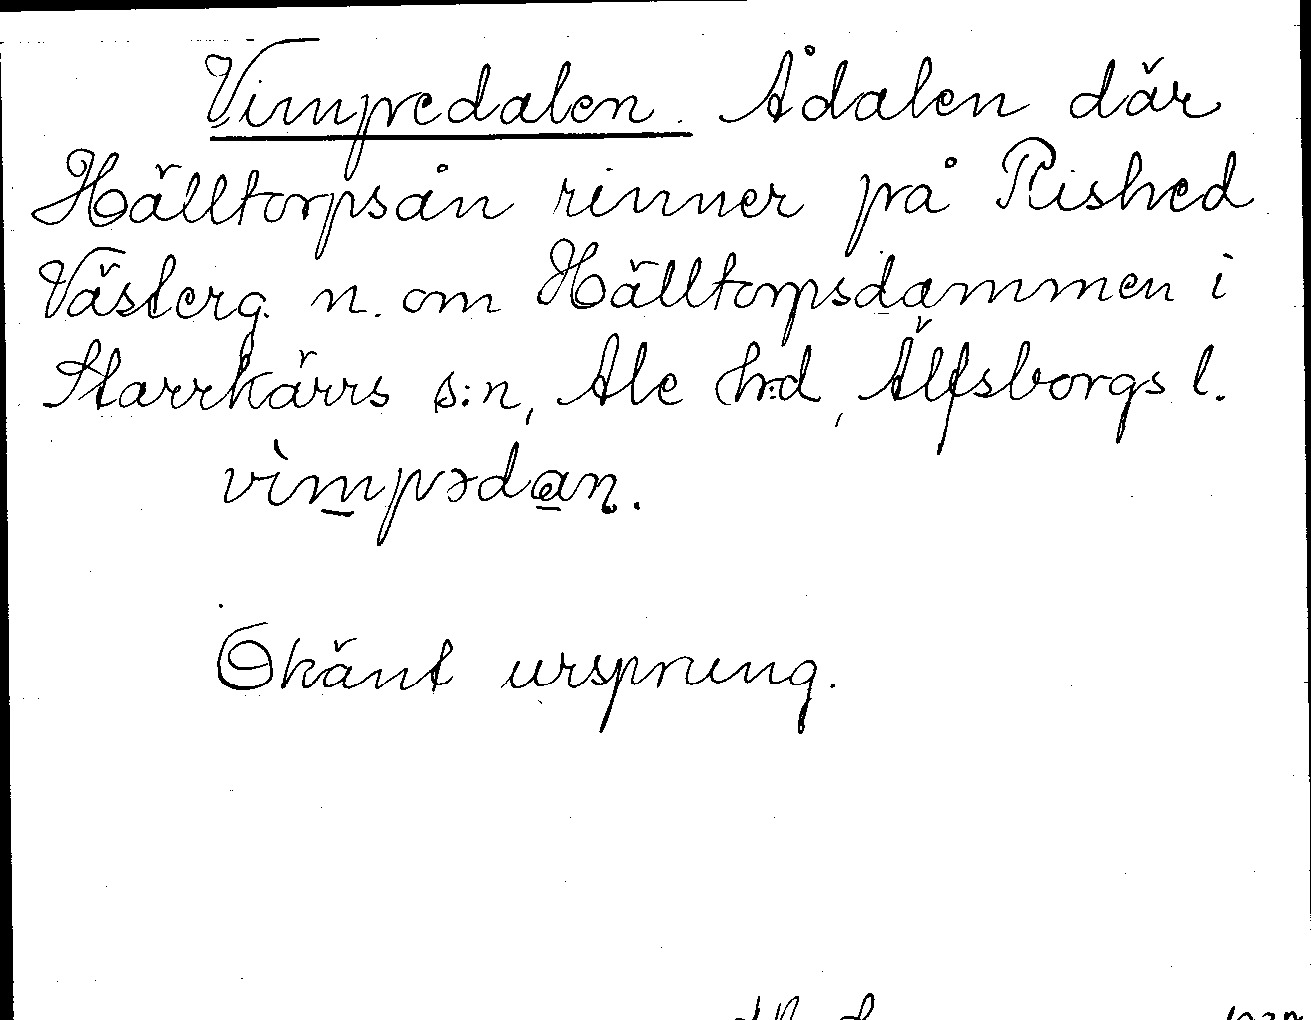 Vimpedalen. Ådalen där
Hälltorpsån rinner på Rished
Västerg. n. om Hälltorpsdammen i
Starrkärrs s:n, Ale h:d, Älfsborgs l.
vìmpədaɳ.
Okänt ursprung.